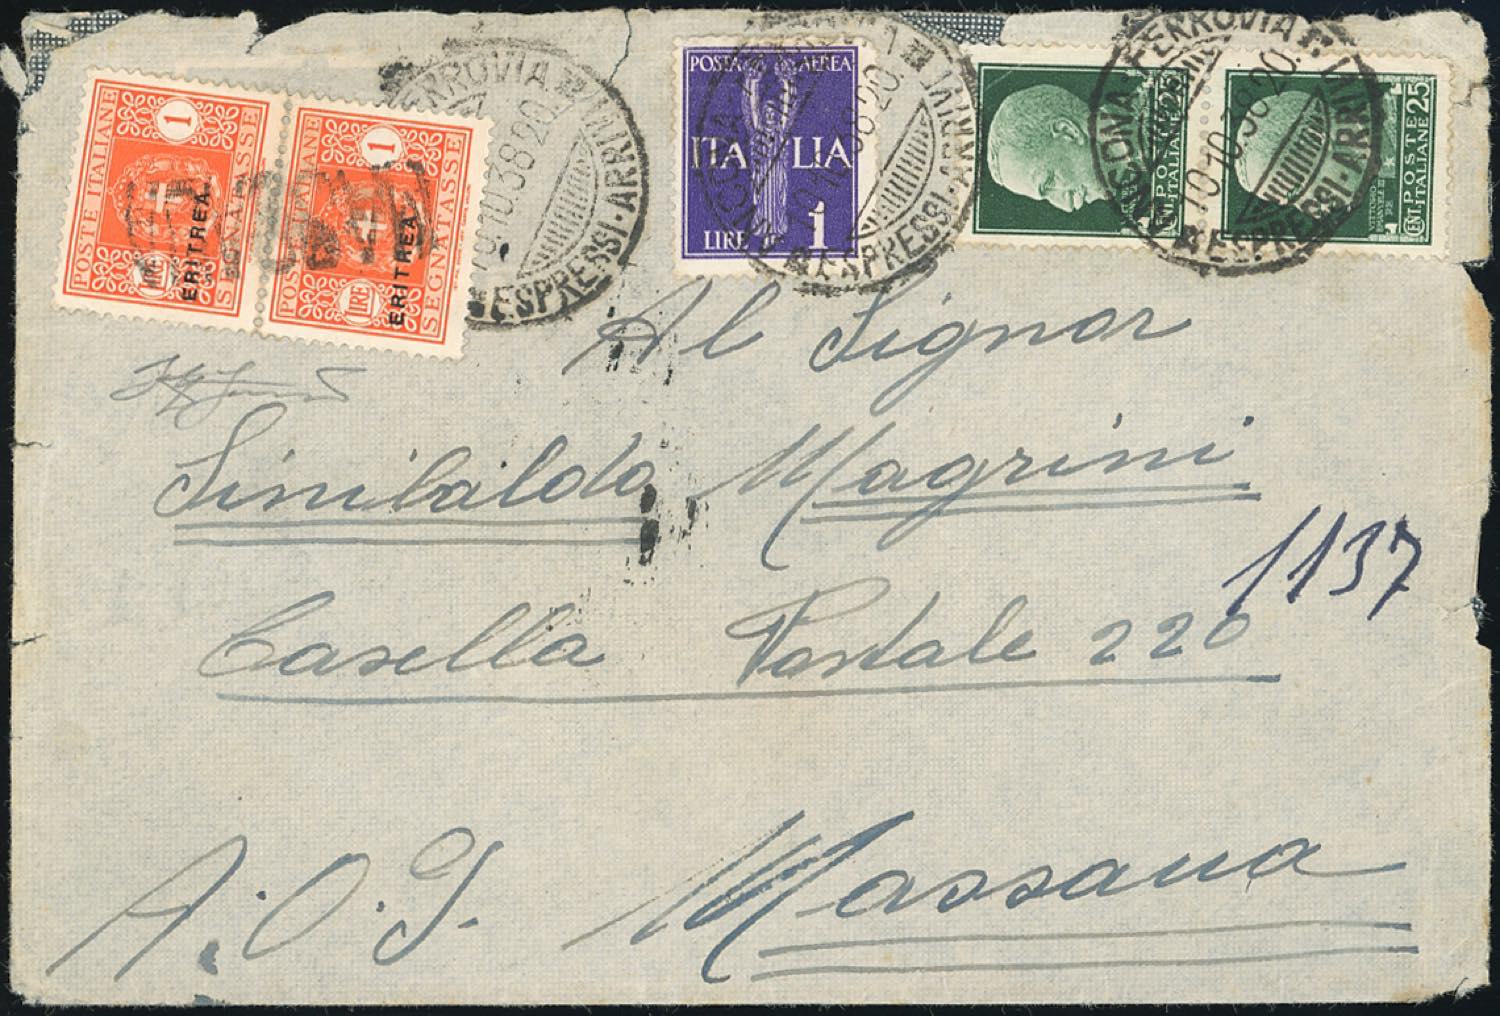 POSTE ITALIANE
1
SEGNATASSE
LIRE
ERITREA
POSTE ITALIANE
1
SEGNATASSE
1 LIRE
ERITREA
FERROVIA
10.10.38 20
ARRIVI
ESPRESSI-ARRIVI
POSTA AEREA
ITALIA
LIRE 1
ANCONA FERROVIA
ESPRESSI-ARRIVI
POSTE
ITALIANE
CENT 25
ANCONA FERROVIA
10.10.38 20.
ESPRESSI-ARRIVI
POSTE
ITALIANE
CENT 25
Al Signor
Sinibaldo Magrini
1137
Casella Postale 220
A.O.I. Massaua